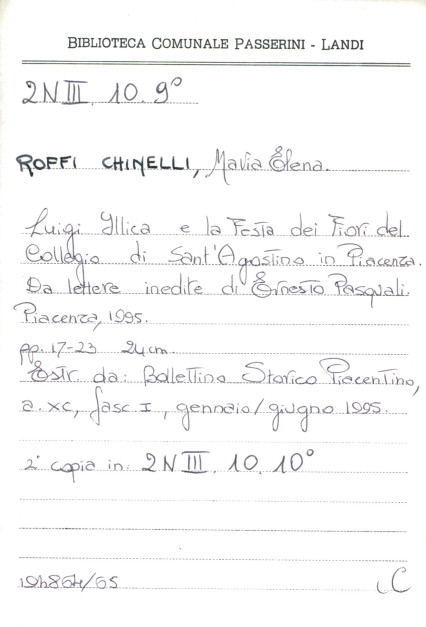 BIBLIOTECA COMUNALE PASSERINI - LANDI
2N III. 10. 9°
ROFFI CHINELLI, Maria Elena.
Luigi Illica e la Festa dei Fiori del
Collegio di Sant'Agostino in Piacenza.
Da lettere inedite di Ernesto Pasquali.
Piacenza, 1995.
pp. 17-23 24 cm.
Estr. da: Bollettino Storico Piacentino,
a. XC, fasc. I, gennaio/giugno 1995.
2ª copia in: 2N III. 10. 10°